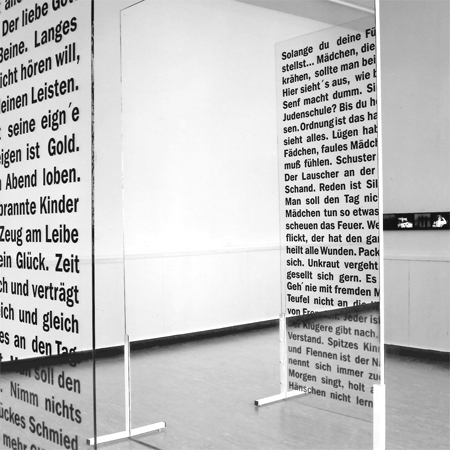 Der liebe Go
Beine. Langes
icht hören will,
einen Leisten.
seine eign´e
eigen ist Gold.
Abend loben.
brannte Kinder
Zeug am Leibe
ein Glück. Zeit
ch und verträgt
eich und gleich
es an den Tag
soll den
Nimm nichts
ückes Schmied
mehr
Solange du deine Fü
stellst... Mädchen, die
krähen, sollte man bei
Hier sieht´s aus, wie b
Senf macht dumm. Si
Judenschule? Bis du h
sen. Ordnung ist das ha
sieht alles. Lügen hab
Fädchen, faules Mädch
muß fühlen. Schuster
Der Lauscher an der
Schand. Reden ist Sil
Man soll den Tag nic
Mädchen tun so etwas
scheuen das Feuer. We
flickt, der hat den gan
heilt alle Wunden. Pack
sich. Unkraut vergeht
gesellt sich gern. Es
Geh´ nie mit fremden M
Teufel nicht an die
von Jeder ist
er Klügere gibt nach.
Verstand. Spitzes Kinn
und Flennen ist der Na
nennt sich immer zu
Morgen singt, holt a
Hänschen nicht lern